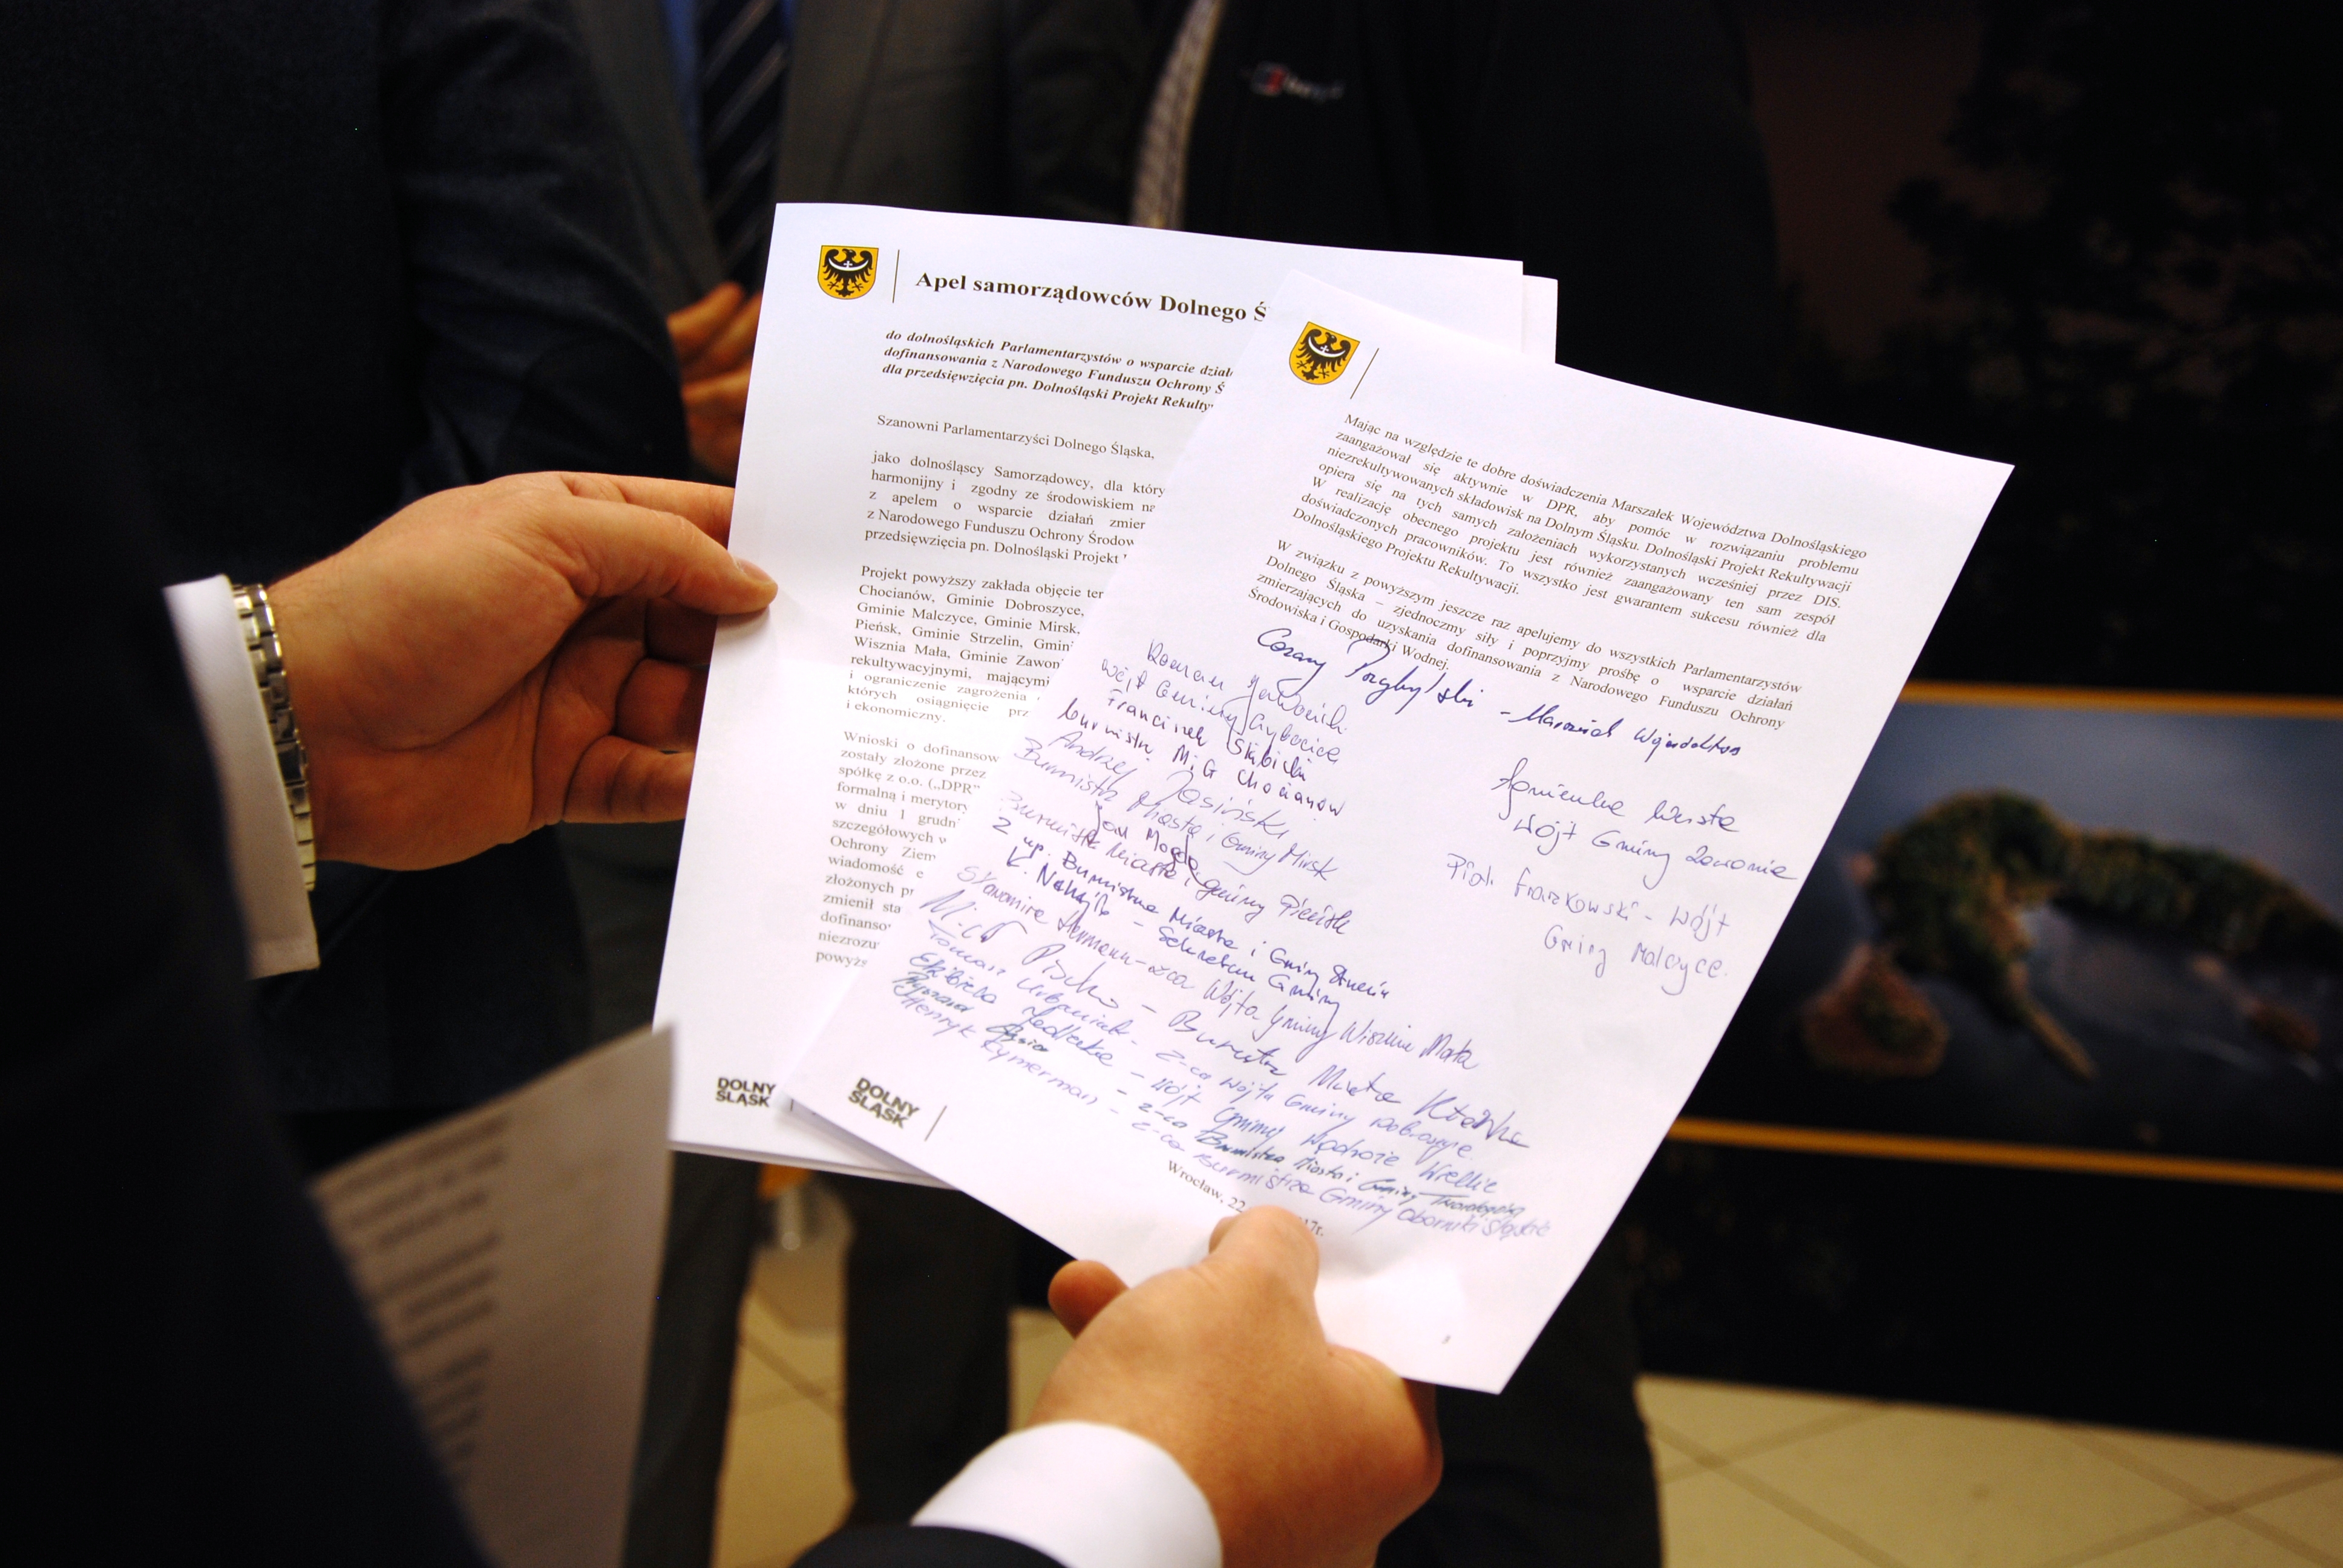 Apel samorządowców Dolnego Ś
do dolnośląskich Parlamentarzystów o wsparcie dział
dofinansowania z Narodowego Funduszu Ochrony Ś
dla przedsięwzięcia pn. Dolnośląski Projekt Rekulty
Szanowni Parlamentarzyści Dolnego Śląska,
jako dolnośląscy Samorządowcy, dla któr
harmonijny i zgodny ze środowiskiem na
z apelem o wsparcie działań zmier
z Narodowego Funduszu Ochrony Środow
przedsięwzięcia pn. Dolnośląski Projekt
Projekt powyższy zakłada objęcie ter
Chocianów, Gminie Dobroszyce,
Gminie Malczyce, Gminie Mirsk,
Pieńsk, Gminie Strzelin, Gmin
Wisznia Mała, Gminie Zawon
rekultywacyjnymi, mającymi
i ograniczenie zagrożenia
których osiągnięcie prz
i ekonomiczny.
Wnioski o dofinansow
zostały złożone przez
spółkę z o.o. („DPR”
formalną i merytory
w dniu 1 grudni
szczegółowych w
Ochrony Ziem
wiadomość
złożonych pr
zmienił sta
dofinanso
niezrozu
powyżs
DOLNY
ŚLĄSK
Mając na względzie te dobre doświadczenia Marszałek Województwa Dolnośląskiego
zaangażował się aktywnie w DPR, aby pomóc w rozwiązaniu problemu
niezrekultywowanych składowisk na Dolnym Śląsku. Dolnośląski Projekt Rekultywacji
opiera się na tych samych założeniach wykorzystanych wcześniej przez DIS.
W realizację obecnego projektu jest również zaangażowany ten sam zespół
doświadczonych pracowników. To wszystko jest gwarantem sukcesu również dla
Dolnośląskiego Projektu Rekultywacji.
W związku z powyższym jeszcze raz apelujemy do wszystkich Parlamentarzystów
Dolnego Śląska – zjednoczmy siły i poprzyjmy prośbę o wsparcie działań
zmierzających do uzyskania dofinansowania z Narodowego Funduszu Ochrony
Środowiska i Gospodarki Wodnej.
Cezary Przybylski - Marszałek Województwa
Roman Jabłoński
Wójt Gminy Grębocice
Franciszek Skibicki
burmistrz M.G Chocianów
Andrzej Jasiński
Burmistrz Miasta i Gminy Mirsk
Jan Magda
Burmistrz Miasta i gminy Pieńsk
Z up. Burmistrza Miasta i Gminy Strzelin
- Sekretarz Gminy
Hermann - z-ca Wójta Gminy Wisznia Mała
- Burmistrz Miasta Kłodzka
Tomasz Urbaniak - z-ca Wójta Gminy Dobroszyce
Elżbieta Jedlecka - Wójt Gminy Wądroże Wielkie
Ryszard - z-ca Burmistrza Miasta i Gminy Twardogóra
Henryk Cymerman - z-ca Burmistrza Gminy Oborniki Śląskie
Agnieszka Wersta
Wójt Gminy Zawonia
Piotr Frankowski - Wójt
Gminy Malczyce.
DOLNY
ŚLĄSK
Wrocław, 22 17r.